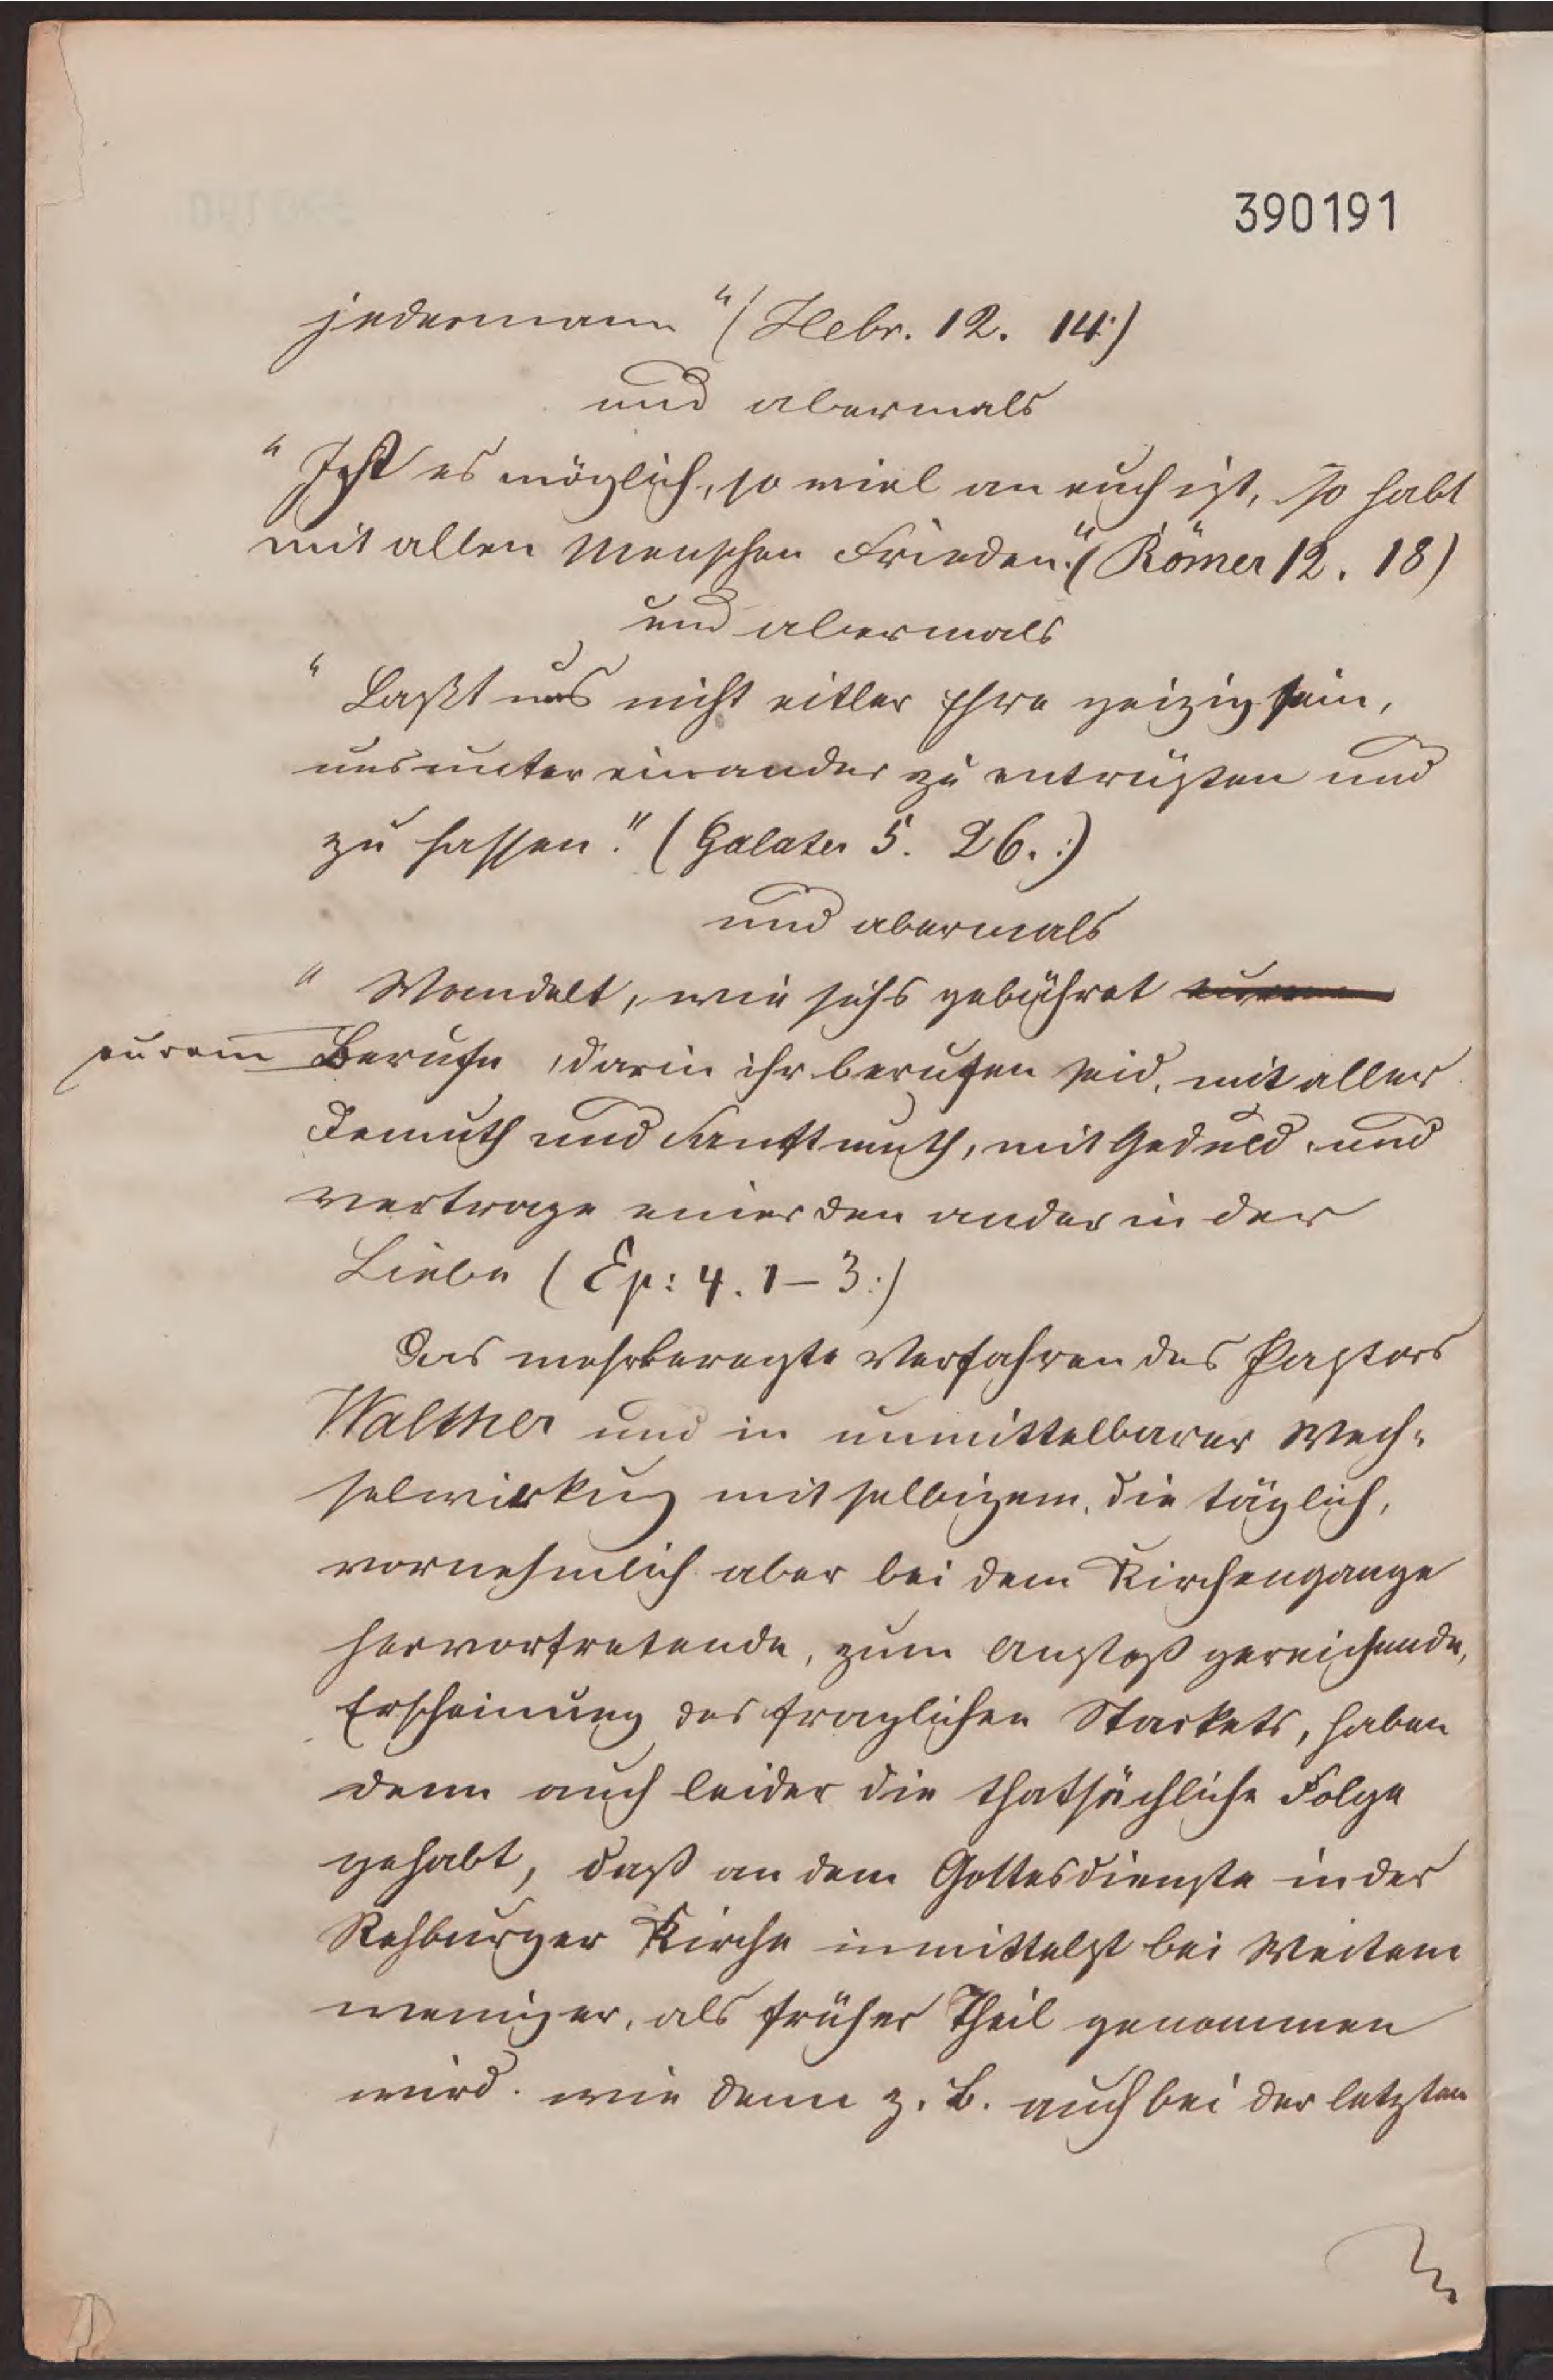 390191
jedermann" (Hebr. 12. 14:)
und abermals
"Ist es möglich, so viel an euch ist, so habt
mit allen Menschen Frieden." (Römer 12. 18)
und abermals
"Laßt uns nicht eitler Ehre geizig sein,
uns unter einander zu entrüsten und
zu hassen." (Galater 5. 26.:)
und abermals
"Wandelt, wie sichs gebühret
eurem Berufe, darin ihr berufen seid, mit aller
Demuth und Sanftmuth, mit Geduld und
vertrage einer denander in der
Liebe (Ep: 4. 1-3:)
Das mehrberegte Verfahren des Pastors
Walther und in unmittelbarer Wech-
selwirkung mit selbigem, die täglich,
vornehmlich aber bei dem Kirchengange
hervortretende, zum Anstoß gereichende,
Erscheinung des fraglichen Stackets, haben
denn auch leider die thatsächliche Folge
gehabt, daß an dem Gottesdienste in der
Rehburger Kirche inmittelst bei Weitem
weniger, als früher Theil genommen
wird. wie denn z. B. auch bei der letzten